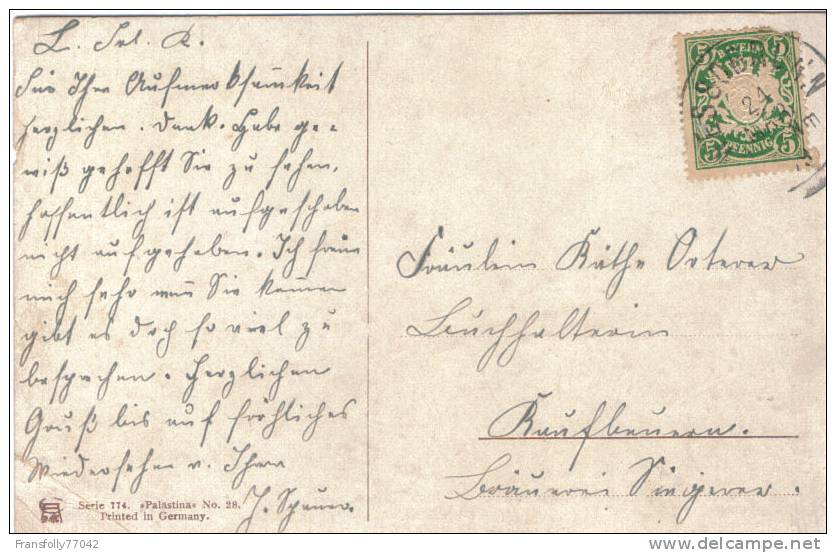 L. Frl. K.
Für Ihre Aufmerksamkeit
herzlichen Dank. Habe ge-
wiß gehofft Sie zu sehen,
hoffentlich ist aufgeschoben
nicht aufgehoben. Ich freue
mich sehr wenn Sie kommen
gibt es doch so viel zu
besprechen. Herzlichen
Gruß bis auf fröhliches
Wiedersehen v. Ihrer
Serie 774. »Palästina« No. 28.
Printed in Germany.
BAYERN
5 5
5 PFENNIG 5
24
Fräulein Käthe Orterer
Buchhalterin
Kaufbeuern.
Brauerei
Fransfolly77042
delcampe.net